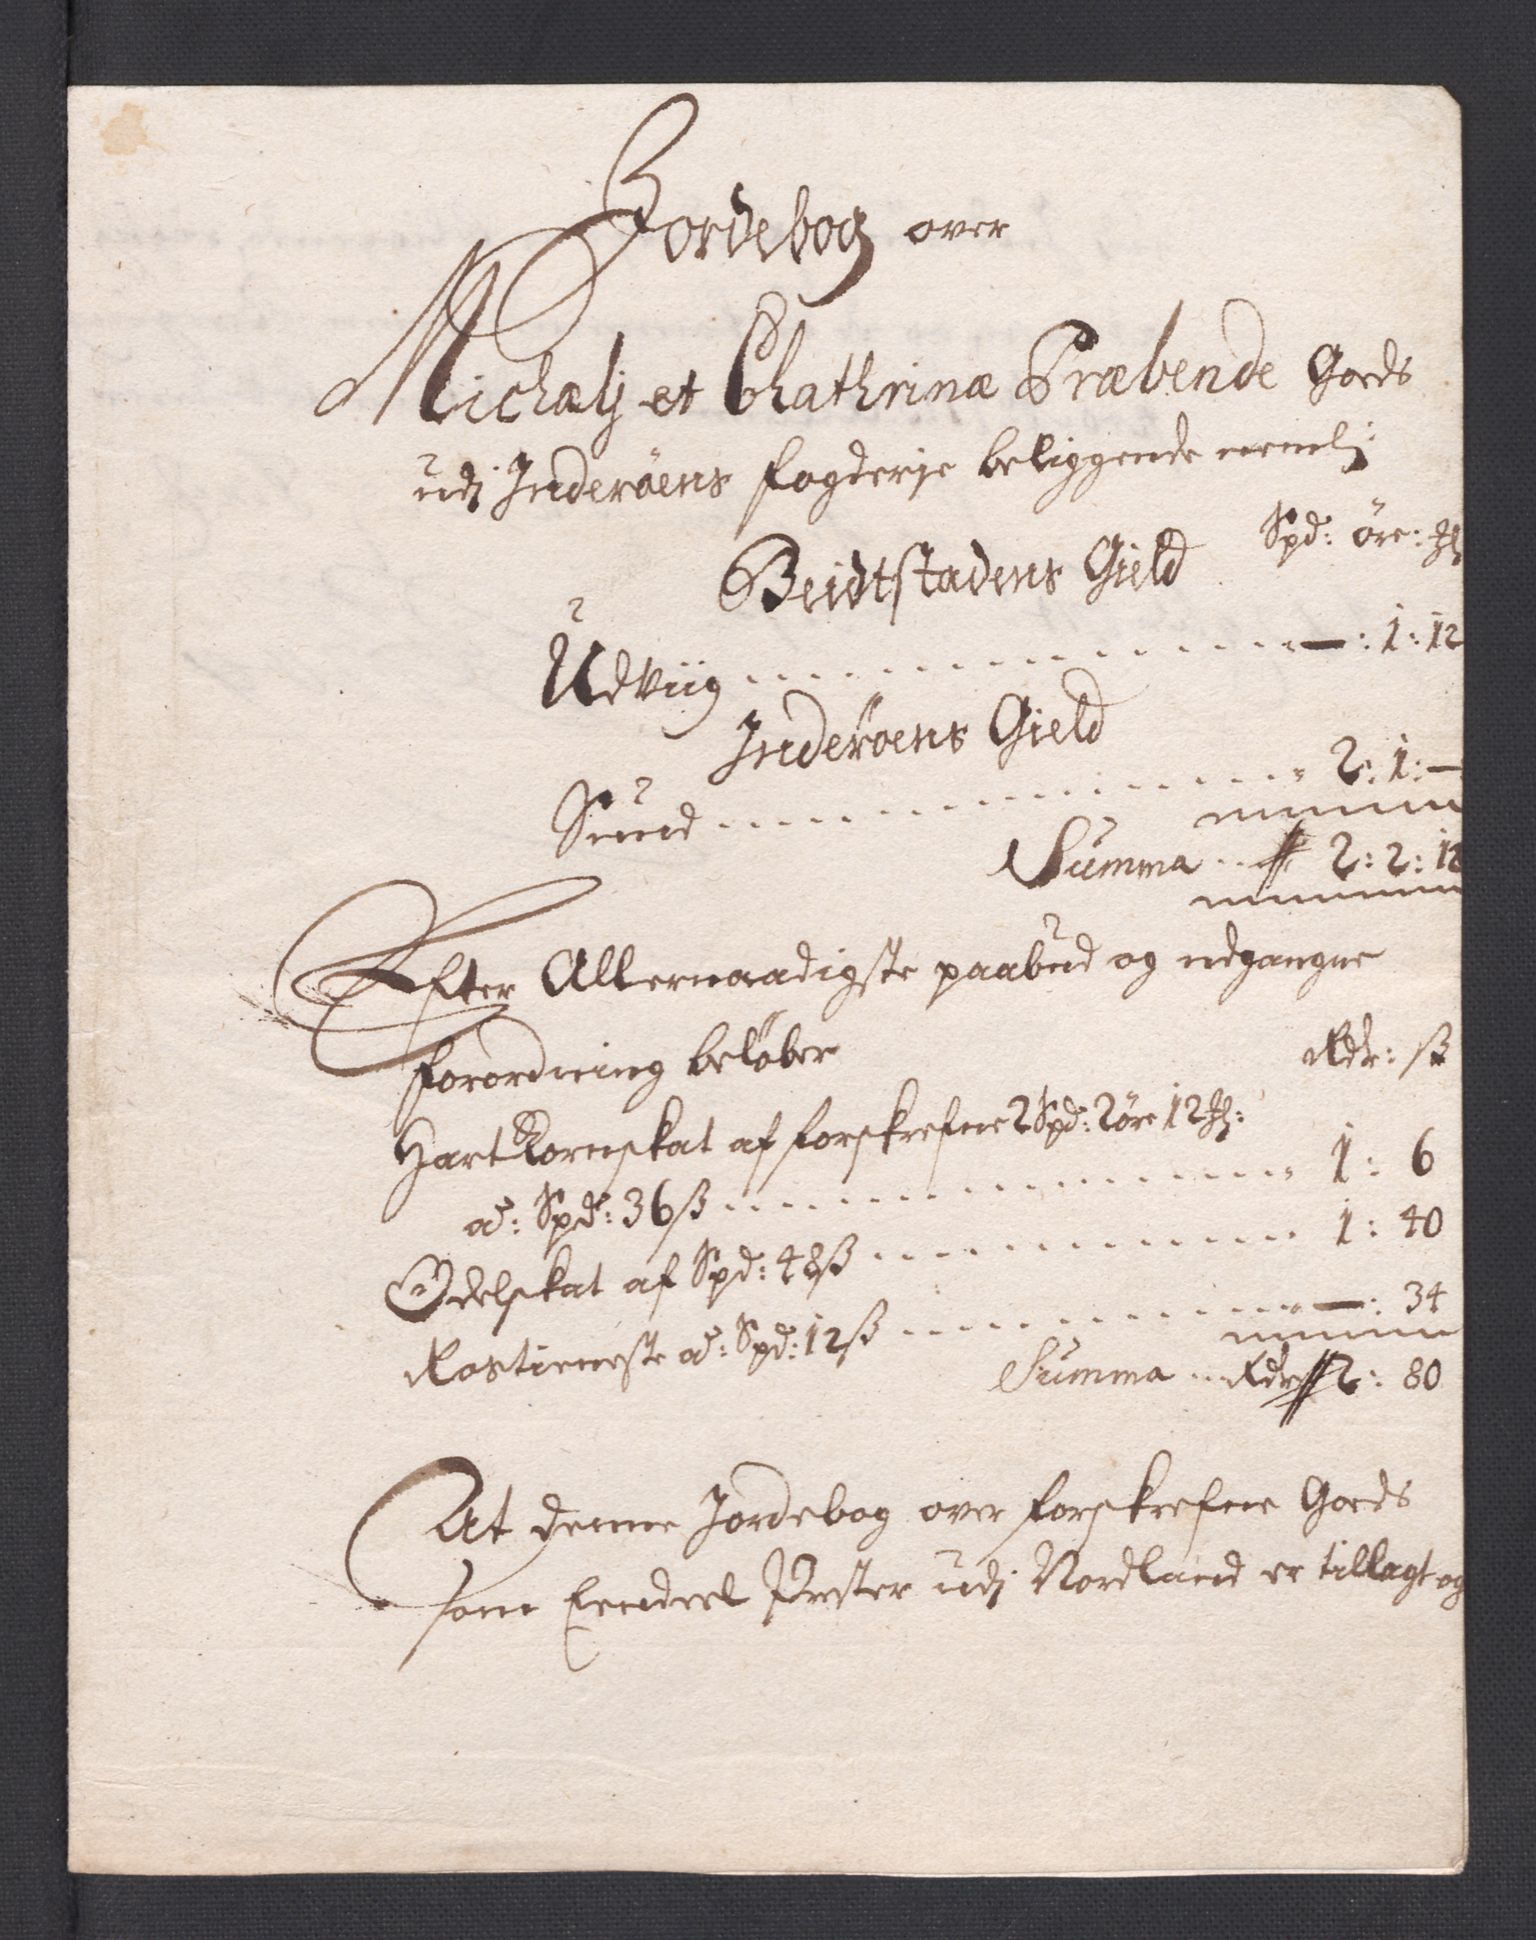 Jordebog over
Michælij et Chathrinæ Præbende Goeds
udj Inderöens fogderje beliggende nemlj:
Beidtstadens Gield Spd: öre:
Udviig — : 1 : 12
Inderöens Gield
Sund 2 : 1 : —
Summa 2 : 2 : 12
Efter Allernaadigste paabud og udgangne
forordning belöber Rdr: ß
Hart Kornskat af forskrefne 2 Spd: 2 öre 12
af: Spd: 36 ß 1 : 6
Odelskat af Spd: 48 ß 1 : 40
Rostieneste af: Spd: 12 ß — : 34
Summa Rdr 2 : 80
At denne Jordebog over forskrefne Goeds
som Eendeel Prester udj Nordland er tillagt og